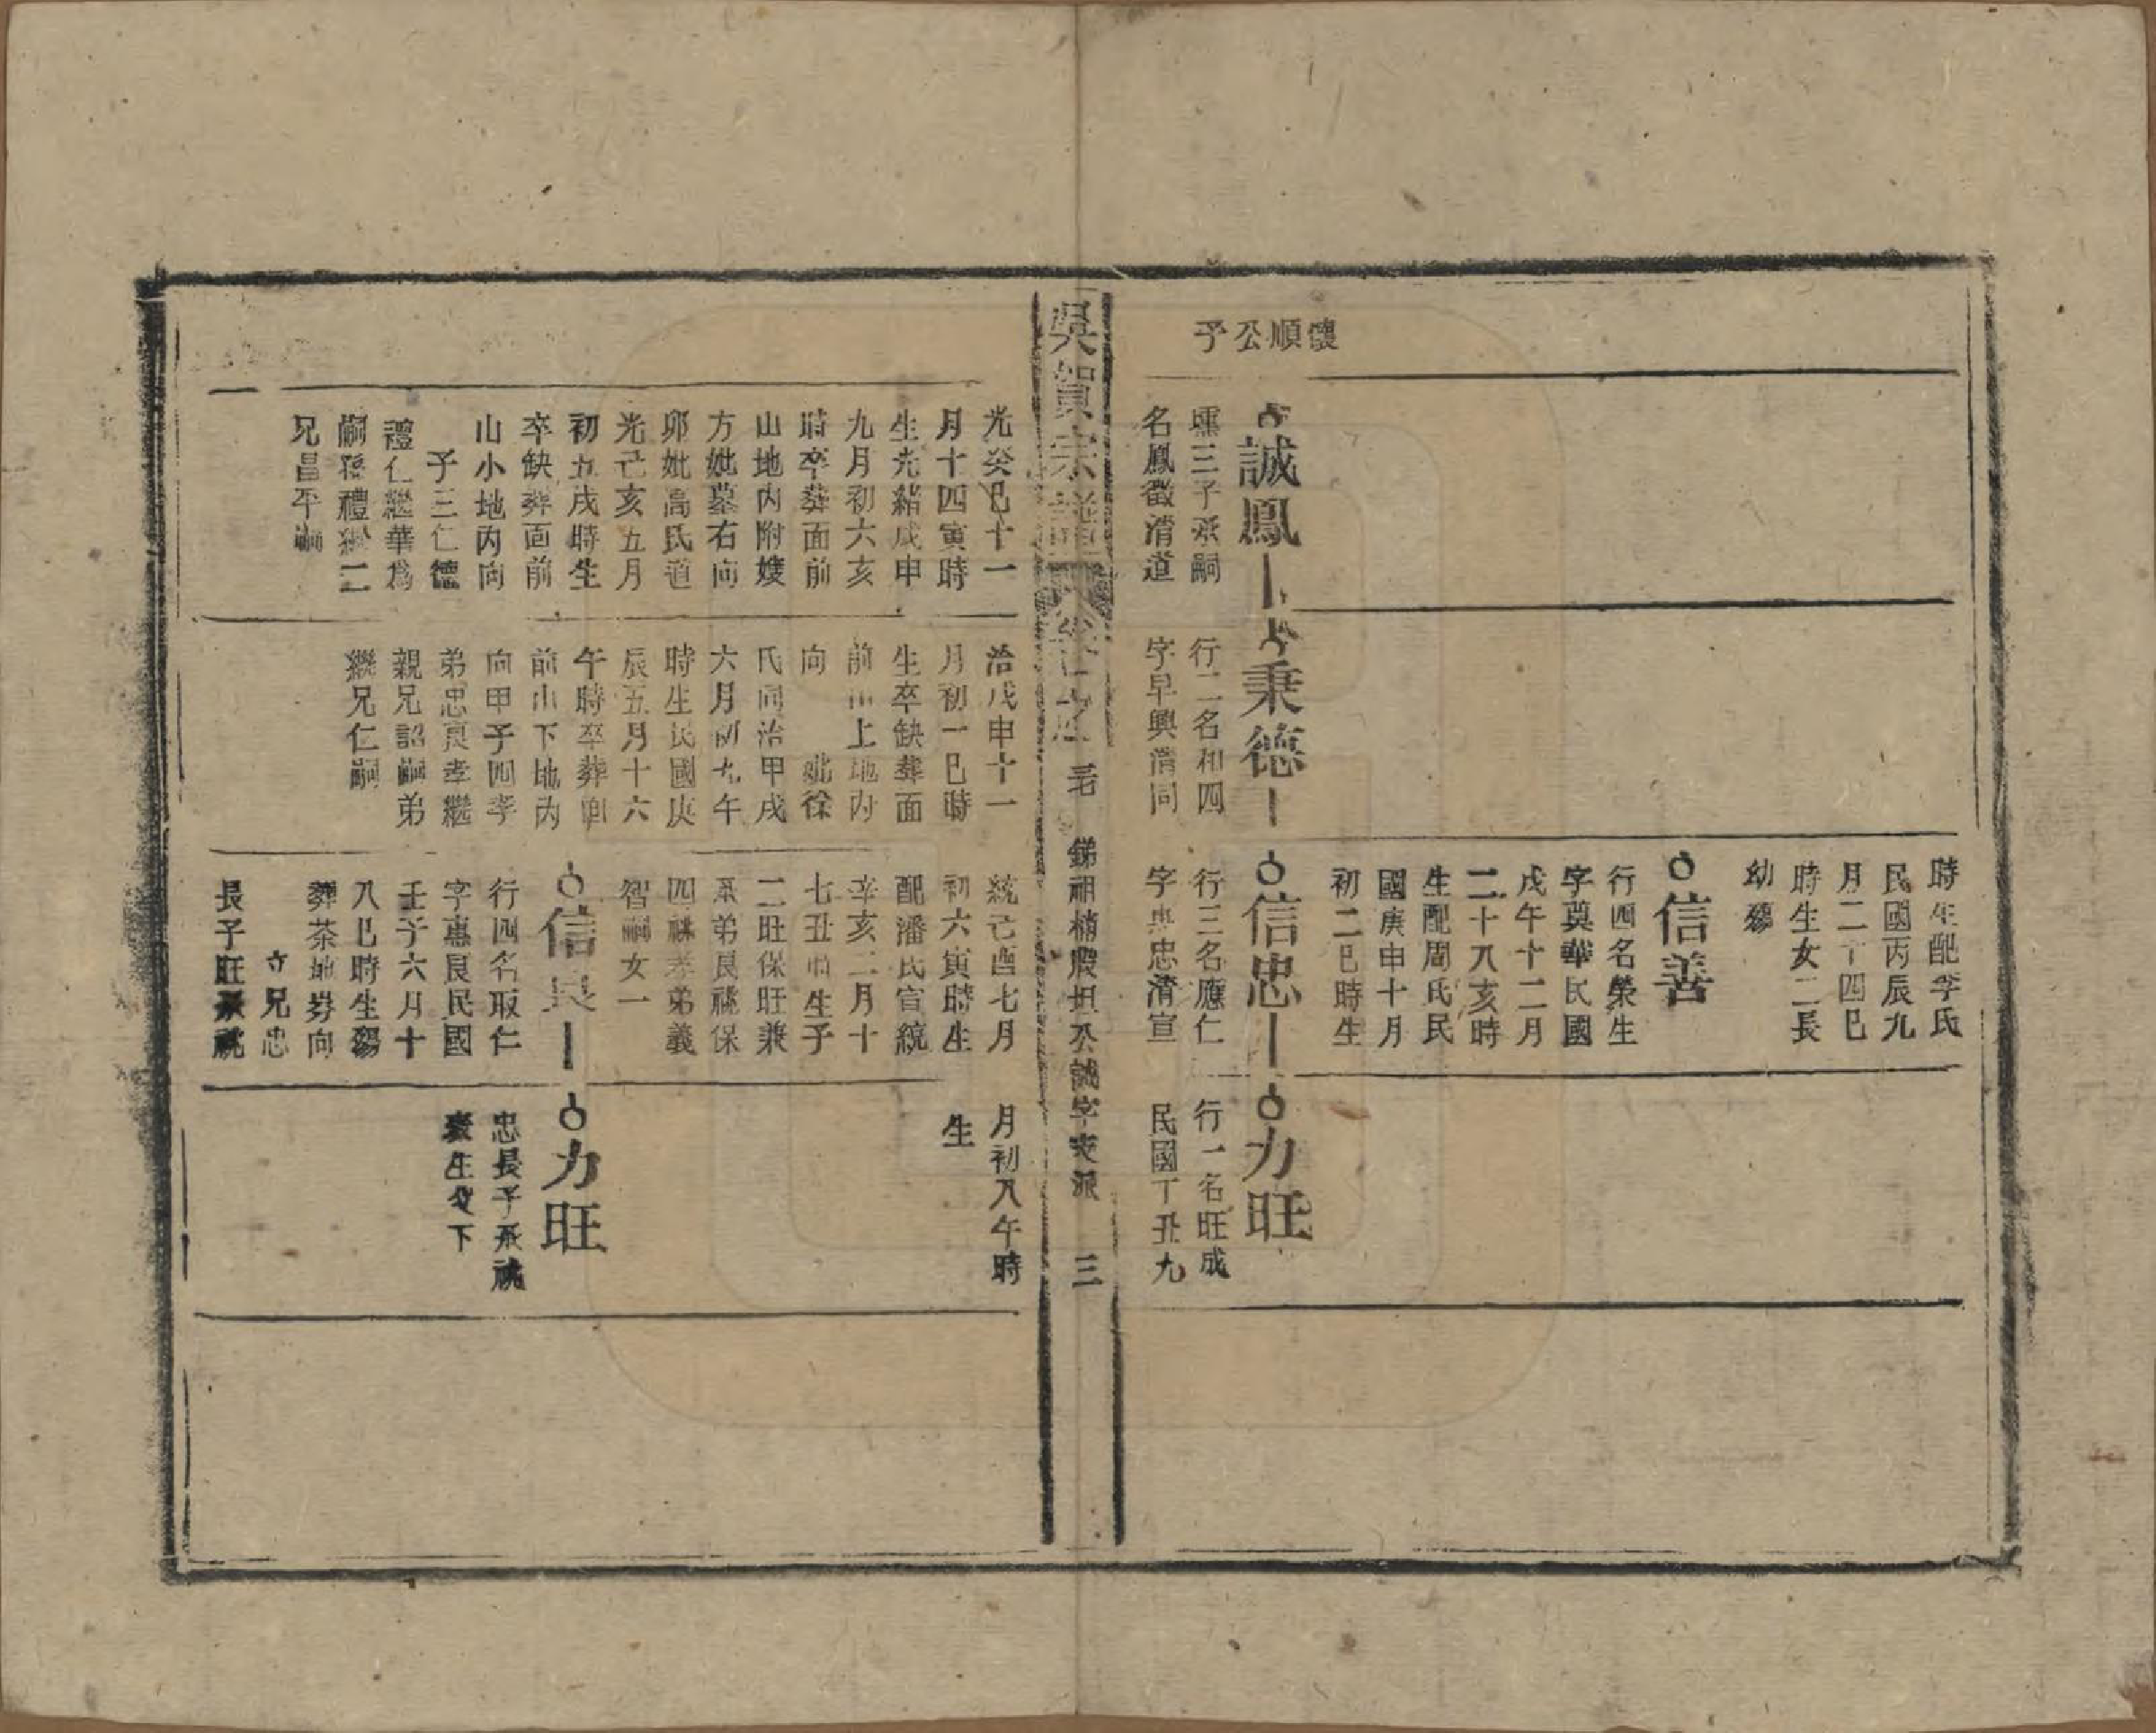 懷順公子
誠鳳
壎三子承嗣
名鳳徵清道
秉德
行二名和四
字早興清同
時生配李氏
民國丙辰九
月二十四巳
時生女二長
幼殤
信善
行四名榮生
字蓂華民國
戊午十二月
二十八亥時
生配周氏民
國庚申十月
初二巳時生
信忠
行三名應仁
字典忠清宣
力旺
行一名旺成
民國丁丑九
吳賀宗譜
卷七之
銻祖楠房坦公誠字支派
三
光癸巳十一
月十四寅時
生光緒戊申
九月初六亥
時卒葬面前
山地內附嫂
方妣墓右向
卯妣高氏道
光己亥五月
初五戌時生
卒缺葬面前
山小地丙向
子三仁德
禮仁繼華為
嗣孫禮繼二
兄昌平嗣
治戊申十一
月初一巳時
生卒缺葬面
前山上地丙
向 妣徐
氏同治甲戌
六月初九午
時生民國庚
辰五月十六
午時卒葬面
前山下地丙
向甲子四孝
弟忠良孝繼
親兄詔嗣弟
繼兄仁嗣
統己酉七月
初六寅時生
配潘氏宣統
辛亥二月十
七丑時生子
二旺保旺兼
承弟良祧保
四祧孝弟義
智嗣女一
信良
行四名取仁
字惠良民國
壬子六月十
八巳時生殤
葬茶地舅向
立兄忠
長子旺承祧
月初八午時
生
力旺
忠長子承祧
裔生發下